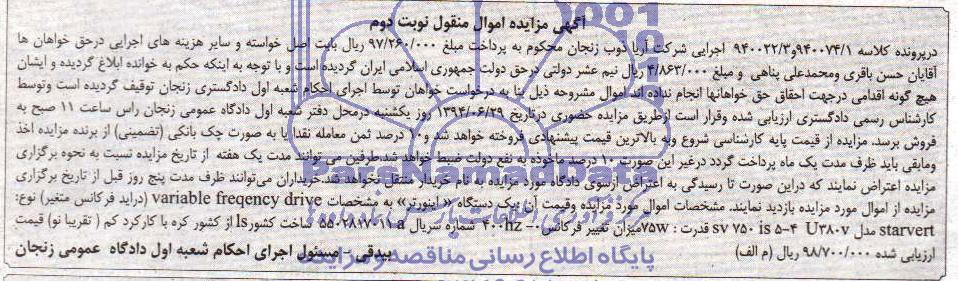 آگهی مزایده اموال منقول نوبت دوم
درپرونده کلاسه ۹۴۰۰۷۴/۱و۹۴۰۰۲۲/۳ اجرایی شرکت آریا ذوب زنجان محکوم به پرداخت مبلغ ۹۷/۲۶۰/۰۰۰ ریال بابت اصل خواسته و سایر هزینه های اجرایی درحق خواهان ها
آقایان حسن باقری ومحمدعلی پناهی و مبلغ ۴/۸۶۳/۰۰۰ ریال نیم عشر دولتی درحق دولت جمهوری اسلامی ایران گردیده است و با توجه به اینکه حکم به خوانده ابلاغ گردیده و ایشان
هیچ گونه اقدامی درجهت احقاق حق خواهانها انجام نداده اند اموال مشروحه ذیل بنا به درخواست خواهان توسط اجرای احکام شعبه اول دادگستری زنجان توقیف گردیده است وتوسط
کارشناس رسمی دادگستری ارزیابی شده وقرار است ازطریق مزایده حضوری درتاریخ ۱۳۹۴/۰۶/۲۹ روز یکشنبه درمحل دفتر شعبه اول دادگاه عمومی زنجان راس ساعت ۱۱ صبح به
فروش برسد. مزایده از قیمت پایه کارشناسی شروع وبه بالاترین قیمت پیشنهادی فروخته خواهد شد و۱۰ درصد ثمن معامله نقدا یا به صورت چک بانکی (تضمینی) از برنده مزایده اخذ
ومابقی باید ظرف مدت یک ماه پرداخت گردد درغیر این صورت ۱۰ درصد ماخوذه به نفع دولت ضبط خواهد شد.طرفین می توانند مدت یک هفته از تاریخ مزایده نسبت به نحوه برگزاری
مزایده اعتراض نمایند که دراین صورت تا رسیدگی به اعتراض ازسوی دادگاه مورد مزایده به نام خریدار منتقل نخواهد شد.خریداران می‌توانند ظرف مدت پنج روز قبل از تاریخ برگزاری
مزایده از اموال مورد مزایده بازدید نمایند. مشخصات اموال مورد مزایده وقیمت آن یک دستگاه «اینورتر» به مشخصات variable freqency drive (دراید فرکانس متغیر) نوع:
starvert مدل sv ۷۵۰ is ۵-۴ U۳۸۰v قدرت : ۷۵wمیزان تغییر فرکانس ۰-۴۰۰hz شماره سریال ۵۵۰۲۸۱۷۰۱۱a ساخت کشورls از کشور کره با کارکرد کم ( تقریبا نو) قیمت
ارزیابی شده ۹۸/۷۰۰/۰۰۰ ریال (م الف)
بیدقی - مسئول اجرای احکام شعبه اول دادگاه عمومی زنجان
ParsNamadData
پایگاه اطلاع رسانی مناقصه و مزایده